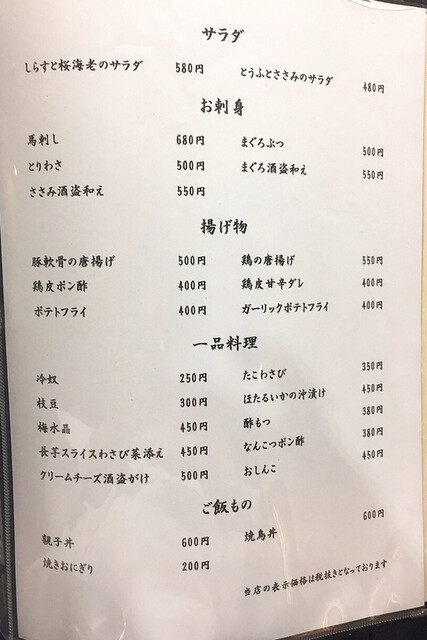 サラダ
しらすと桜海老のサラダ 580円
とうふとささみのサラダ 480円
お刺身
馬刺し 680円
まぐろぶつ 500円
とりわさ 500円
まぐろ酒盗和え 550円
ささみ酒盗和え 550円
揚げ物
豚軟骨の唐揚げ 500円
鶏の唐揚げ 550円
鶏皮ポン酢 400円
鶏皮甘辛ダレ 400円
ポテトフライ 400円
ガーリックポテトフライ 400円
一品料理
冷奴 250円
たこわさび 350円
枝豆 300円
ほたるいかの沖漬け 450円
梅水晶 450円
酢もつ 380円
長芋スライスわさび菜添え 450円
なんこつポン酢 380円
クリームチーズ酒盗がけ 500円
おしんこ 450円
ご飯もの
親子丼 600円
焼鳥丼 600円
焼きおにぎり 200円
当店の表示価格は税抜きとなっております